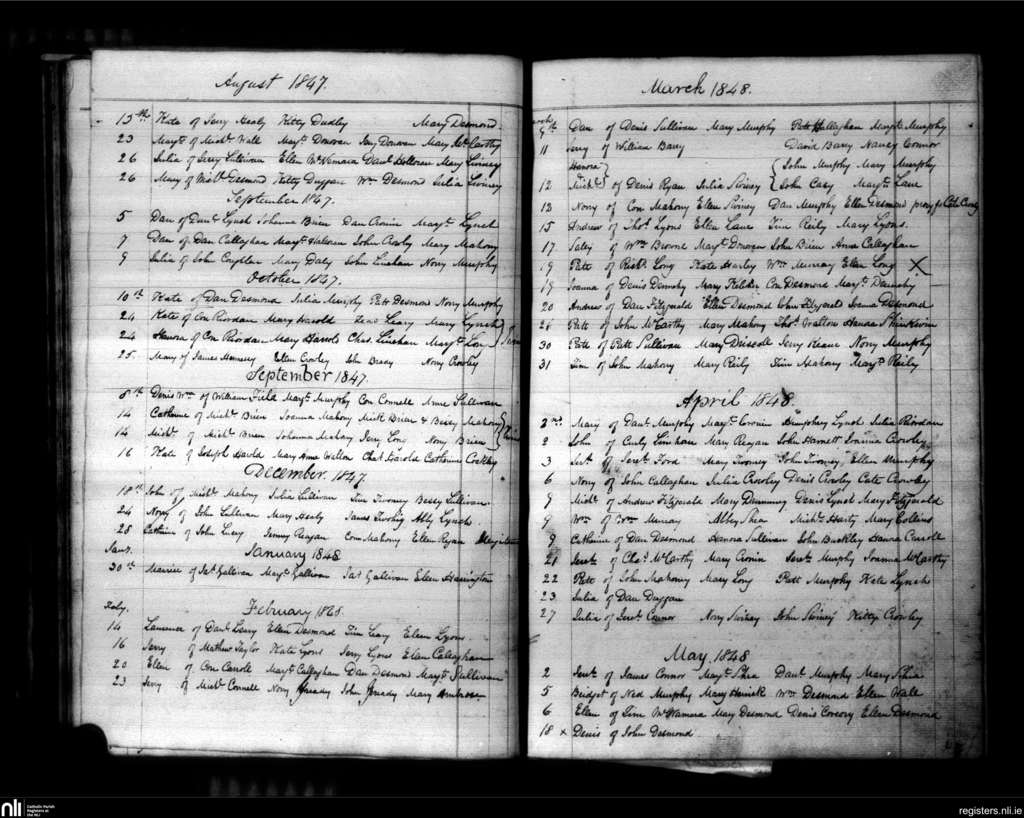 August 1847.
13th Kate of Jerry Healy Kitty Dudley Mary Desmond
23 Margt. of Michl. Wall Margt. Donovan Jerry Donovan Mary McCarthy
26 Julia of Jerry Sullivan Ellen McNamara Danl. Holloran Mary Swiney
26 Mary of Michl. Desmond Kitty Duggan Wm. Desmond Julia Swiney
September 1847.
5 Dan of Danl. Lynch Johanna Brien Dan Cronin Margt. Lynch
7 Dan of Dan Callaghan Margt. Halloran John Crowly Mary Mahony
9 Julia of John Coghlan Mary Daly John Linehan Nony Murphy
October 1847.
10th Kate of Dan Desmond Julia Murphy Patt Desmond Nony Murphy
24 Kate of Con Riordan Mary Harold Leary Mary Lynch
24 Honora of Con Riordan Mary Harold Chas. Linehan Margt.
25 Mary of James Hennessy Ellen Crowley John Nony Crowley
September 1847.
8th Denis Wm. of William Field Margt. Murphy Con Connell Anne Sullivan
14 Catherine of Michl. Brien Joanna Mahony Michl. Brien & Bessy Mahony
14 Michl. of Michl. Brien Johanna Mahony Jerry Long Nony Brien
16 Kate of Joseph Harold Mary Anne Walton Chas. Harold Catherine Coakley
December 1847.
18th John of Michl. Mahony Julia Sullivan Tim Twomey Bessy Sullivan
24 Nony of John Sullivan Mary Healy James Twohig Abby Lynch
28 Catherine of John Lucey Jenny Reagan Con Mahony Ellen Ryan
Jany. January 1848
30th Maurice of Jas. Gallivan Margt. Gallivan Jas. Gallivan Ellen Harrington
Feby. February 1848.
14 Laurence of Danl. Berry Ellen Desmond Tim Leary Ellen Lyons
16 Jerry of Mathew Taylor Kate Lyons Jerry Lyons Ellen Callaghan
20 Ellen of Con Carroll Margt. Callaghan Dan Desmond Margt. Sullivan
23 Jerry of Michl. Connell Nony John Mary Ambrose
March 1848.
March
9th Dan of Denis Sullivan Mary Murphy Patt Hallaghan Margt. Murphy
11 Jerry of William Barry David Barry Nancy Connor
Hanora John Murphy Mary Murphy
12 Michl. of Denis Ryan Julia Swiney John Casy Margt. Lane
13 Nony of Con Mahony Ellen Swiney Dan Murphy Ellen Desmond proxy for Cath
15 Andrew of Thos. Lyons Ellen Lane Tim Reily Mary Lyons
17 Patsy of Wm. Browne Margt. Donovan John Brien Anne Callaghan
19 Patt of Richd. Long Kate Hartey Wm. Murray Ellen Long X
19 Joanna of Denis Dennehy Mary Kelleher Con Desmond Margt. Dennehy
20 Andrew of Dan Fitzgerald Ellen Desmond John Fitzgerald Joanna Desmond
21 Patt of John McCarthy Mary Mahony Thos. Walton Hanora
30 Pate of Patt Sullivan Mary Driscoll Jerry Keane Nony Murphy
31 Tim of John Mahony Mary Reily Tim Mahony Margt. Reily
April 1848.
2nd Mary of Danl. Murphy Margt. Cronin Humphrey Lynch Julia Riordan
2 John of Curly Linehan Mary Reagan John Harnett Joanna Crowley
3 Jer. of Jerh. Ford Mary Twomey John Twomey Ellen Murphy
6 Nony of John Callaghan Julia Crowley Denis Crowley Cate Crowley
9 Michl. of Andrew Fitzgerald Mary Denis Lynch Mary Fitzgerald
9 Wm. of Wm. Murray Abbey Shea Michl. Harty Mary Collins
9 Catherine of Dan Desmond Hanora Sullivan John Buckley Hanora Carroll
21 Jerh. of Chas. McCarthy Mary Cronin Jerh. Murphy Joanna McCarthy
22 Patt of John Mahony Mary Long Patt Murphy Kate Lynch
23 Julia of Dan Duggan
27 Julia of Jerh. Connor Nony Swiney John Swiney Kitty Crowley
May 1848
2 Jerh. of James Connor Margt. Shea Danl. Murphy Mary Shea
5 Bridget of Ned Murphy Mary Herrick Wm. Desmond Ellen Wall
6 Ellen of Tim McNamara Mary Desmond Denis Ellen Desmond
18 x Denis of John Desmond
nli Catholic Parish Registers at the NLI
registers.nli.ie